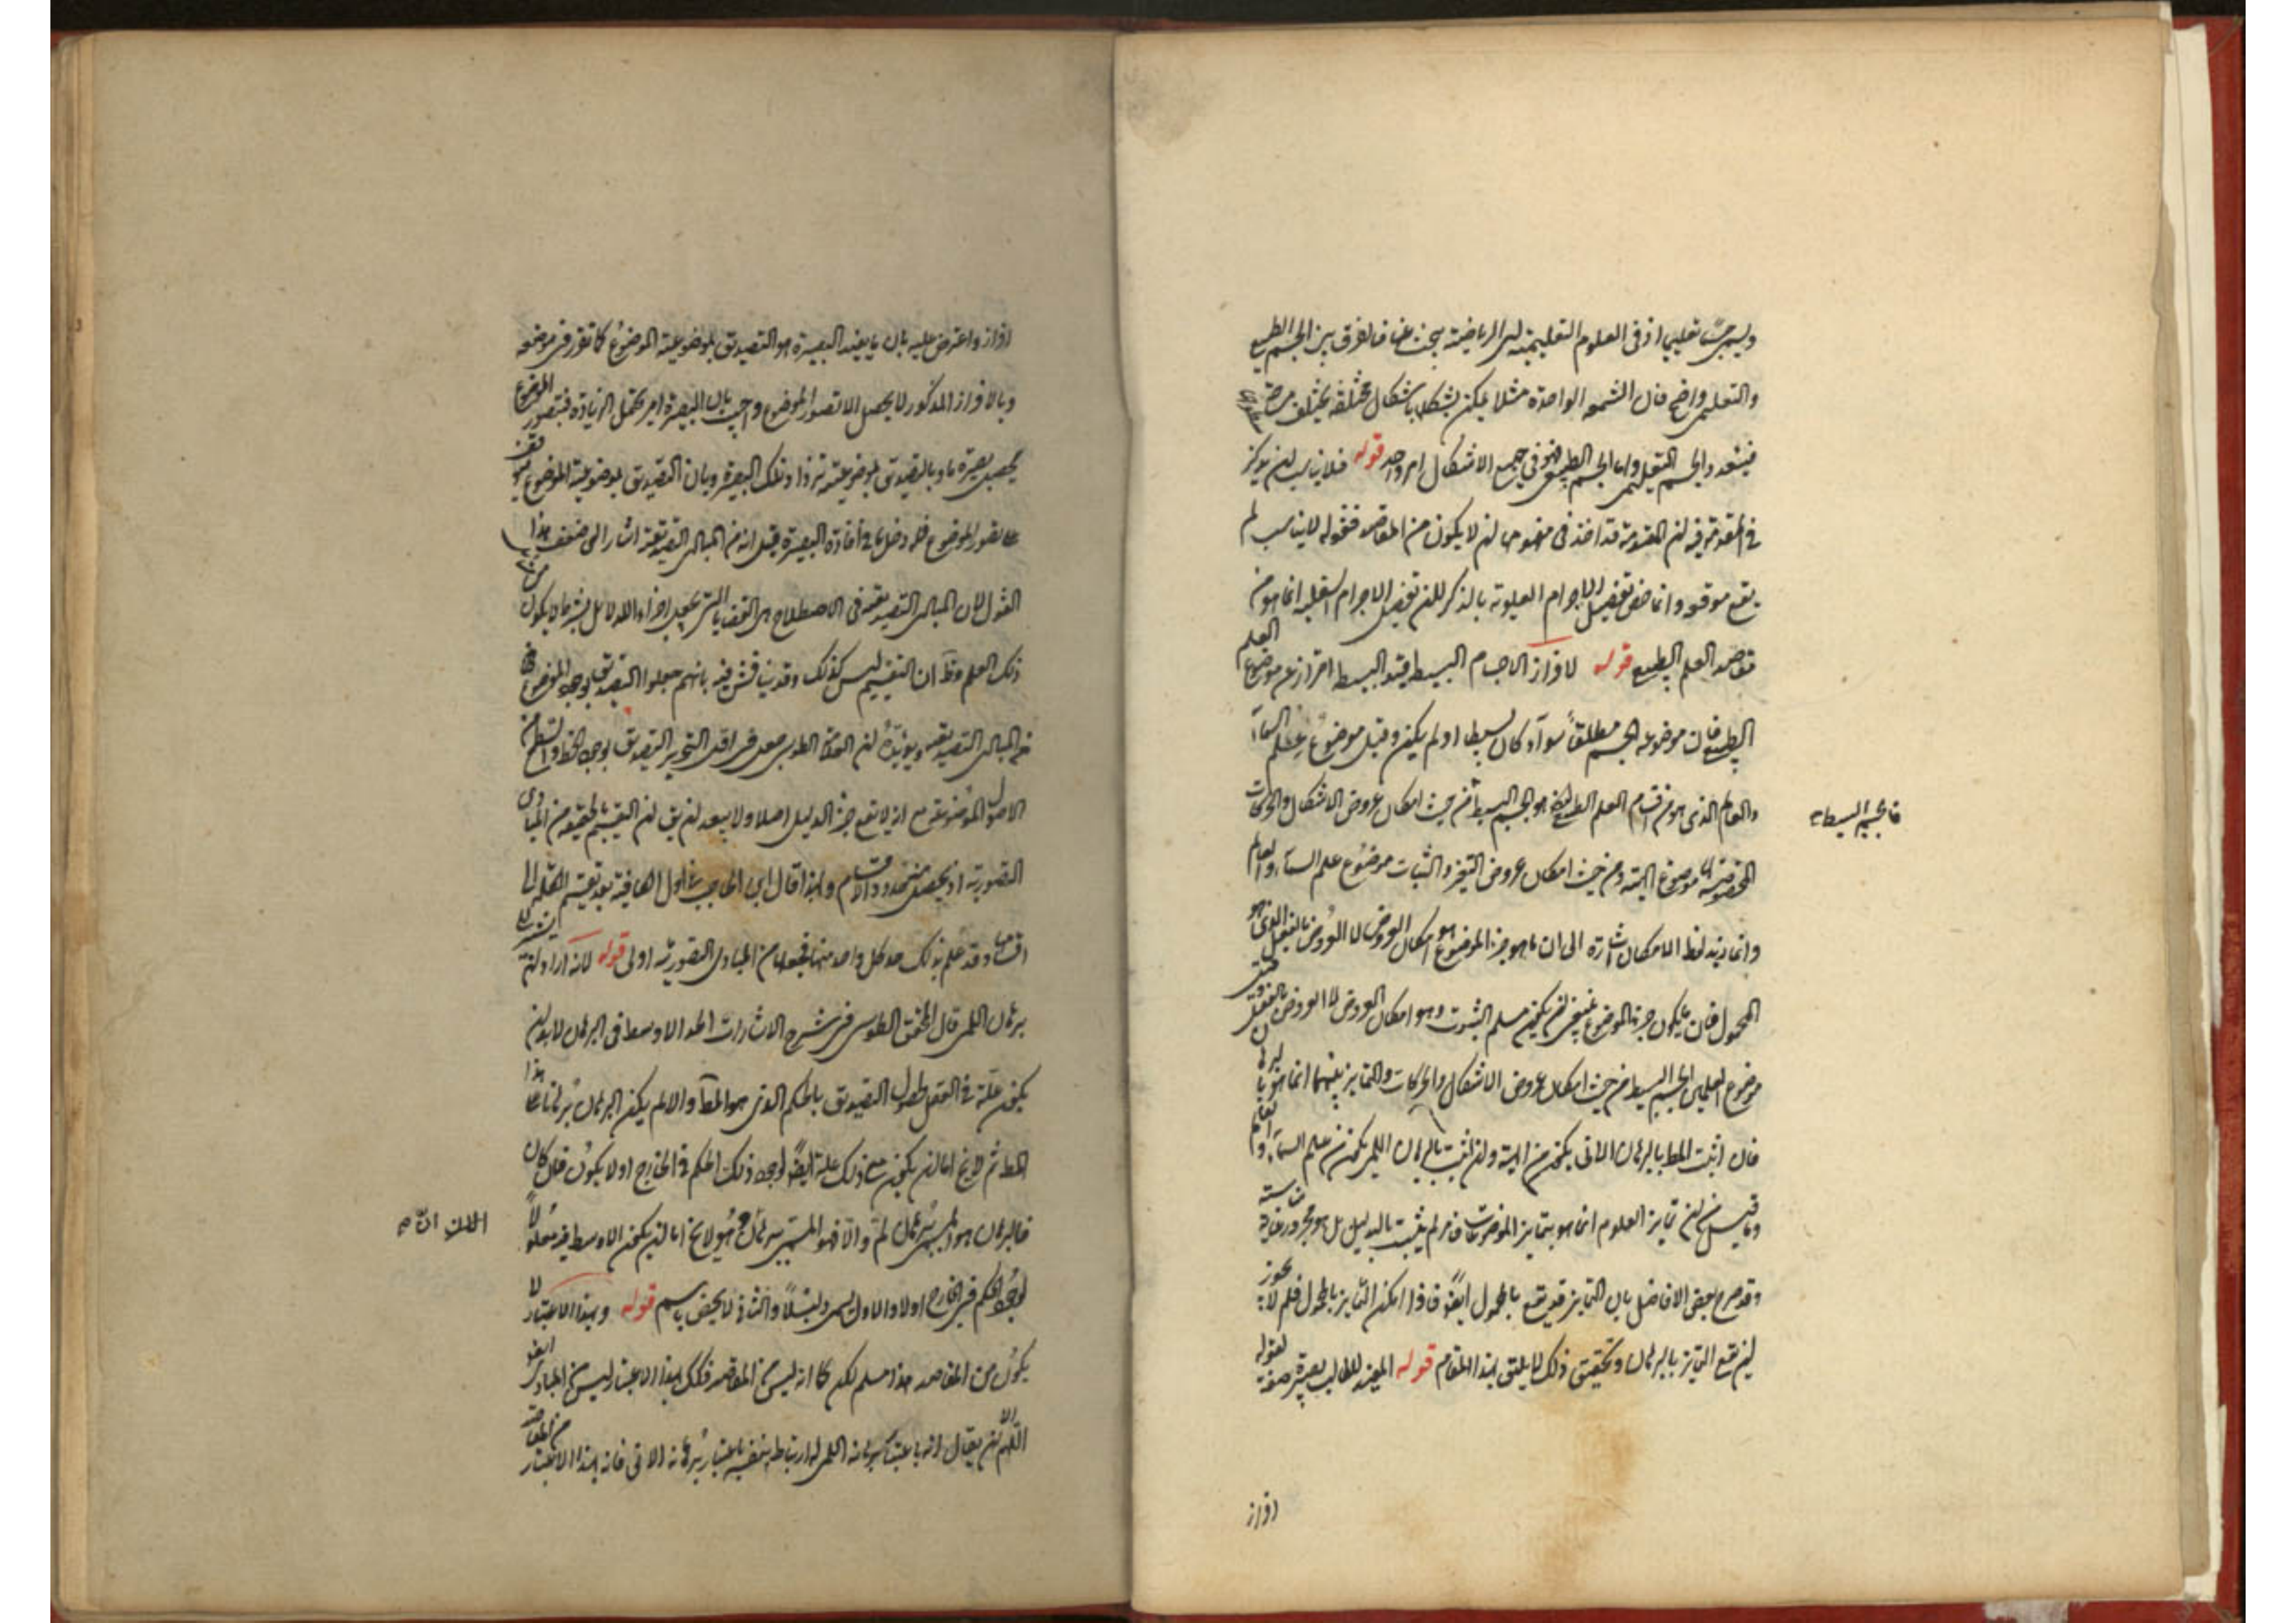 ويسمى جسما تعليميا اذ فى العلوم التعليمية اى الرياضية يبحث عنها فالفرق بين الجسم الطبيعى
والتعليمى واضح فان الشمعة الواحدة مثلا يمكن تشكلها باشكال مختلفة يختلف
فيتعدد الجسم التعليمى واما الجسم الطبيعى فهو فى جميع الاشكال امر واحد قوله فلا يناسب ان يذكر
فى المقدمة فيه ان المقدمة قد اخذ فى مفهومها ان لا يكون من المقاصد فقوله لا يناسب لم
يقع موقعه وانما خص تفصيل الاجرام العلوية بالذكر لان تفصيل الاجرام السفلية انما هو من
مقاصد العلم الطبيعى قوله لافراز الاجسام البسيطة قيد البسيط احتراز عن موضوع العلم
الطبيعى فان موضوعه الجسم مطلقا سواء كان بسيطا او لم يكن وقيل موضوع علم السماء
والعالم الذى هو من اقسام العلم الطبيعى هو الجسم البسيط من حيث امكان عروض الاشكال والحركات
فالجسم البسيط
المخصوصة موضوع الهيئة ومن حيث امكان عروض التغير والثبات موضوع علم السماء والعالم
وانما زيد لفظ الامكان اشارة الى ان ما هو جزء الموضوع هو امكان العروض لا العروض بالفعل الذى هو
المحمول فان ما يكون جزء الموضوع ينبغى ان يكون مسلم الثبوت وهو امكان العروض لا العروض بالفعل
موضوع العلمين الجسم البسيط من حيث امكان عروض الاشكال والحركات والتمايز بينهما انما هو بالبرهان
فان اثبت المط بالبرهان الانى يكون من الهيئة وان اثبت بالبرهان اللمى يكون من علم السماء والعالم
وما قيل من ان تمايز العلوم انما هو بتمايز الموضوعات فامر لم يثبت بالدليل بل هو مجرد رعاية مناسبة
وقد صرح بعض الافاضل بان التمايز قد يقع بالمحمول ايضا فاذا امكن التمايز بالمحمول فلم لا يجوز
ان يقع التمايز بالبرهان وتحقيق ذلك لا يليق بهذا المقام قوله المفيد للطالب بصيرة صفة لقوله
افراز
افراز واعترض عليه بان ما يفيد البصيرة هو التصديق بموضوعية الموضوع كما تقرر فى موضعه
وبالافراز المذكور لا يحصل الا تصور الموضوع واجيب بان البصيرة امر يحتمل الزيادة فبتصور الموضوع
يحصل بصيرة ما وبالتصديق بموضوعيته تزداد تلك البصيرة وبان التصديق بموضوعية الموضوع
على تصور الموضوع فله دخل ما فى افادة البصيرة قيل انه من المبادى التصديقية اشار الى ضعف هذا
القول لان المبادى التصديقية فى الاصطلاح هى القضايا التى تجعل اجزاء الدلائل
ذلك العلم وظ ان التقسيم ليس كذلك وقد يناقش فيه بانهم جعلوا التصديق بوجود الموضوع
من المبادى التصديقية ويؤيده ان العلامة الطوسى عد فى اقليدس التحرير التصديق بوجود الخط والسطح من
الاصول الموضوعة مع انه لا يقع جزء الدليل اصلا ولا يبعد ان يق ان التقسيم بالحقيقة من المبادى
التصورية اذ يحصل منه حدود الاقسام ولهذا قال ابن الحاجب فى اول الكافية بعد تقسيم الكلمة الى
اقسامها وقد علم بذلك حد كل واحد منها فجعلها من المبادى التصورية اولى قوله لانه اراد
برهان اللمى قال المحقق الطوسى فى شرح الاشارات الحد الاوسط فى البرهان لابد ان
يكون علة فى العقل لحصول التصديق بالحكم الذى هو المط والا لم يكن البرهان برهانا على هذا
المط ثم لا يخ اما ان يكون مع ذلك علة ايضا لوجود ذلك الحكم فى الخارج او لا يكون فان كان
فالبرهان هو المسمى برهان لم والا فهو المسمى ببرهان ان وهو لا يخ اما ان يكون الاوسط فيه معلولا
لوجود الحكم فى الخارج او لا والاول يسمى دليلا والثانى لا يخص باسم قوله وبهذا الاعتبار لا
يكون من المقاصد هذا مسلم لكن كما انه ليس من المقاصد فكك بهذا الاعتبار ليس من المبادى ايضا
اللهم الا ان يقال انه باعتبار برهانه اللمى له ارتباط بنفسه باعتبار برهانه الانى فانه بهذا الاعتبار من المقاصد